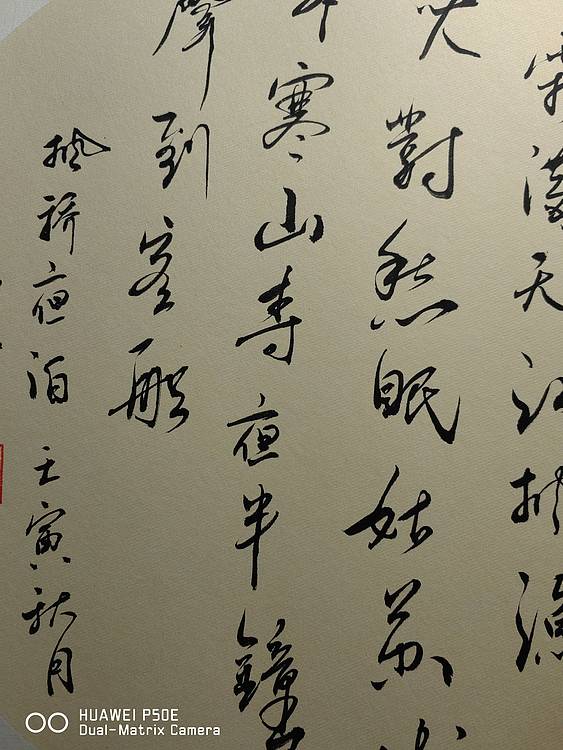 霜滿天江楓漁
火對愁眠姑蘇
寒山寺夜半鐘
聲到客船
楓橋夜泊 壬寅秋月
HUAWEI P50E
Dual-Matrix Camera